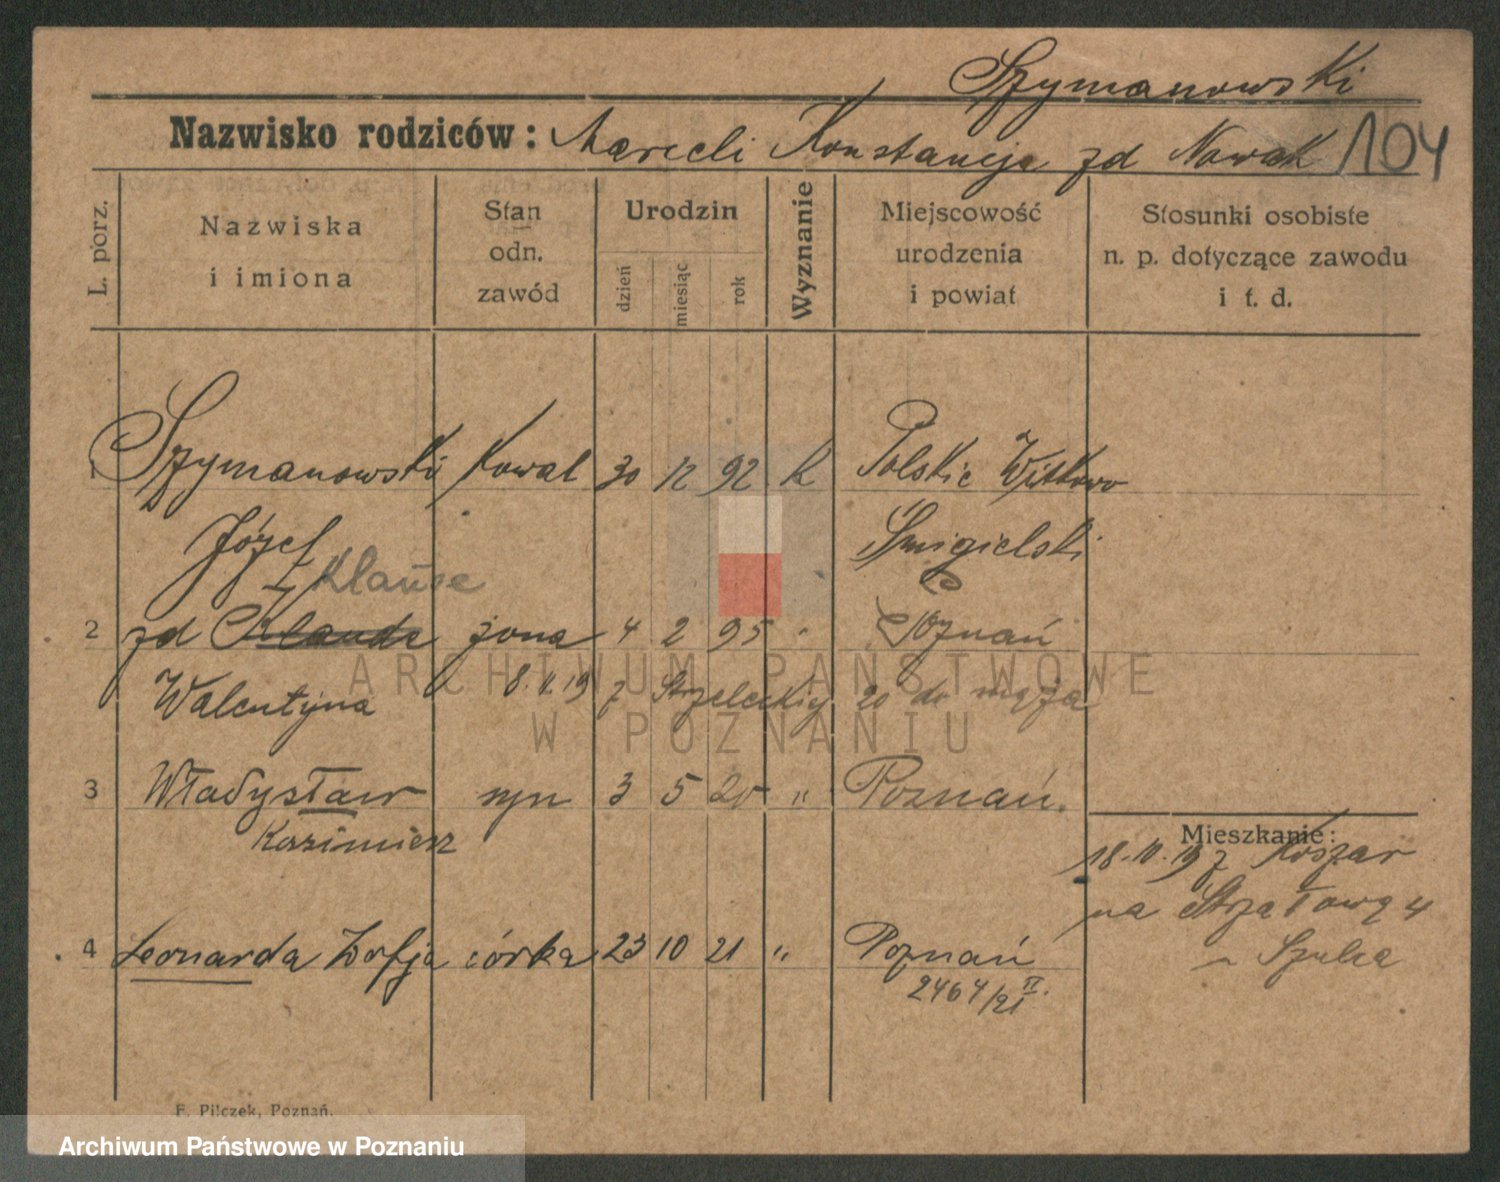 Szymanowski
Nazwisko rodziców: Marceli Konstancja zd Nowak 104
L. porz.
Nazwiska
i imiona
Stan
odn.
zawód
Urodzin
dzień
miesiąc
rok
Wyznanie
Miejscowość
urodzenia
i powiat
Stosunki osobiste
n. p. dotyczące zawodu
i t. d.
1 Szymanowski Kowal 30 12 92 k Polskie Witkowo
Józef Śmigielski
Klause
2 zd Klaude żona 4 2 95 " Poznań
Walentyna 8.11.19 z Strzeleckiej 20 do męża
3 Władysław syn 3 5 20 " Poznań.
Kazimierz
Mieszkanie:
18.10.19 z Koszar
na Strzałową 4
Szulca
4 Leonarda Zofja córka 23 10 21 " Poznań
2464/21 II.
F. Pilczek, Poznań.
ARCHIWUM PAŃSTWOWE
W POZNANIU
Archiwum Państwowe w Poznaniu